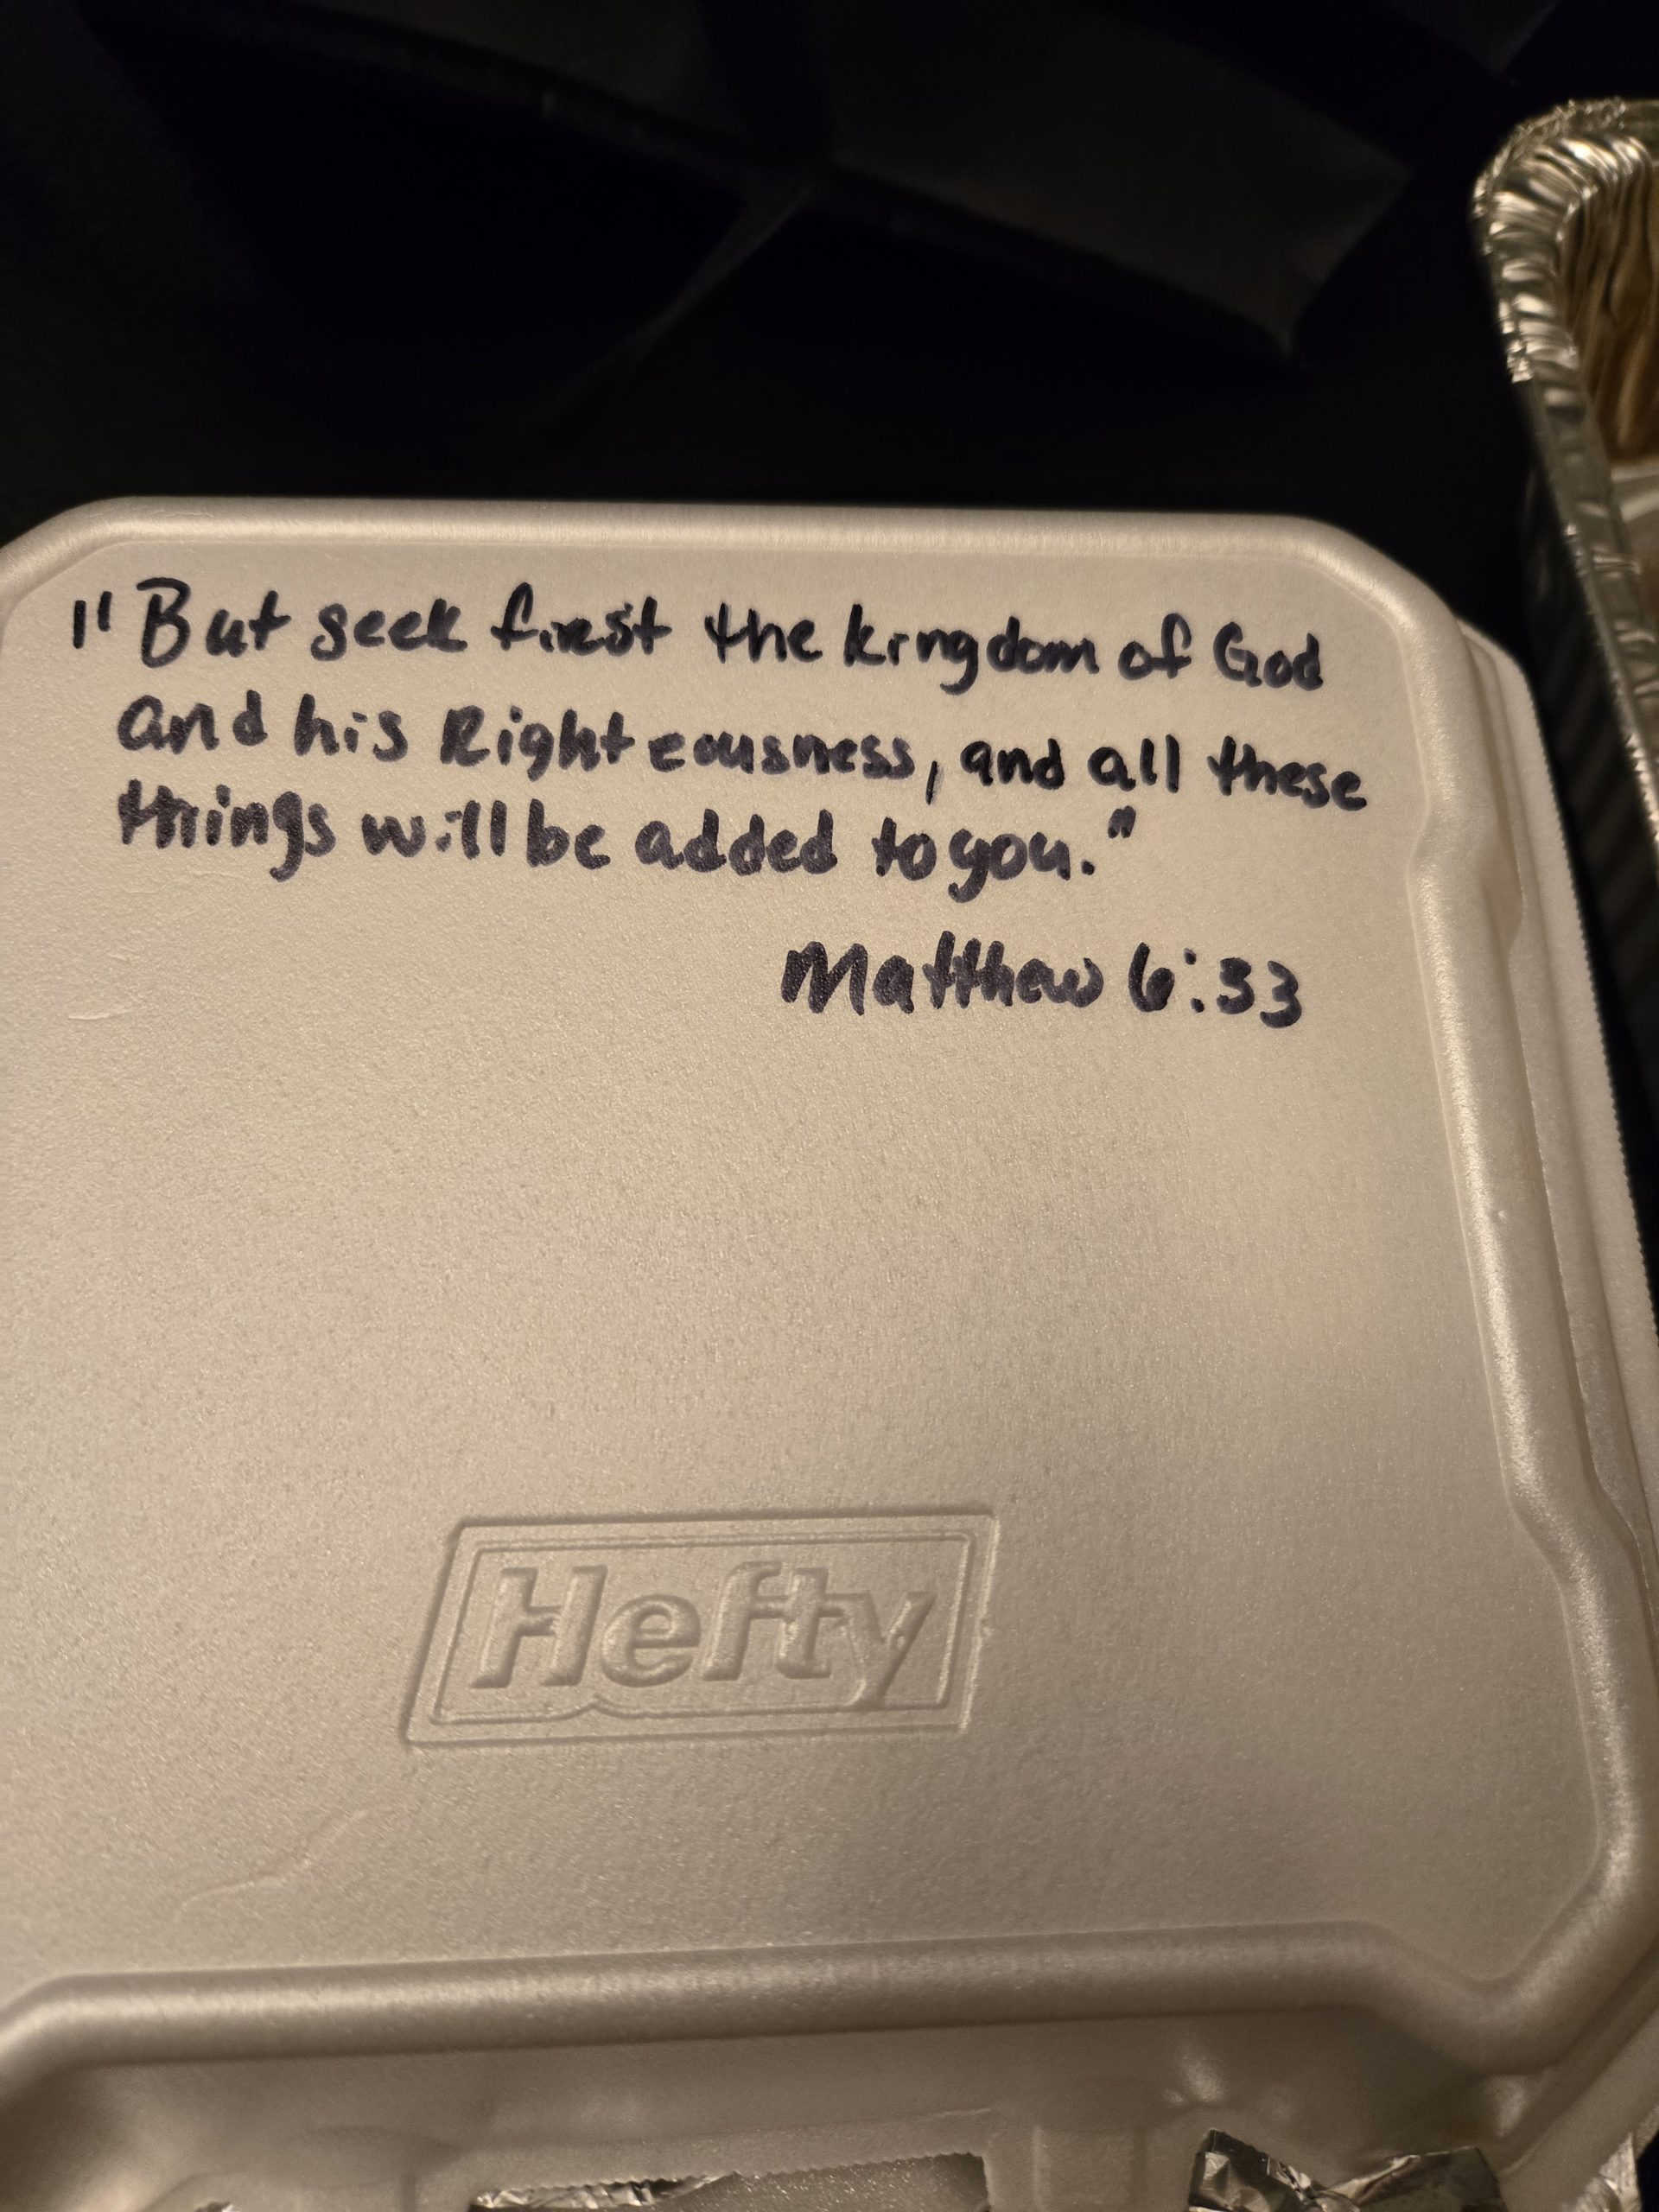 "But seek first the kingdom of God
and his Righteousness, and all these
things will be added to you."
Matthew 6:33
Hefty